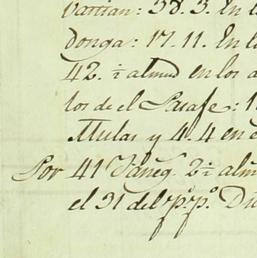 varian: 38. 3. En l
donga: 17. 11. En l
42. ½ almud en los a
los de el Pasage: 1
Mulas y 4. 4 en e
Por 41 faneg. 2½ alm
el 31 del pº. pº. D